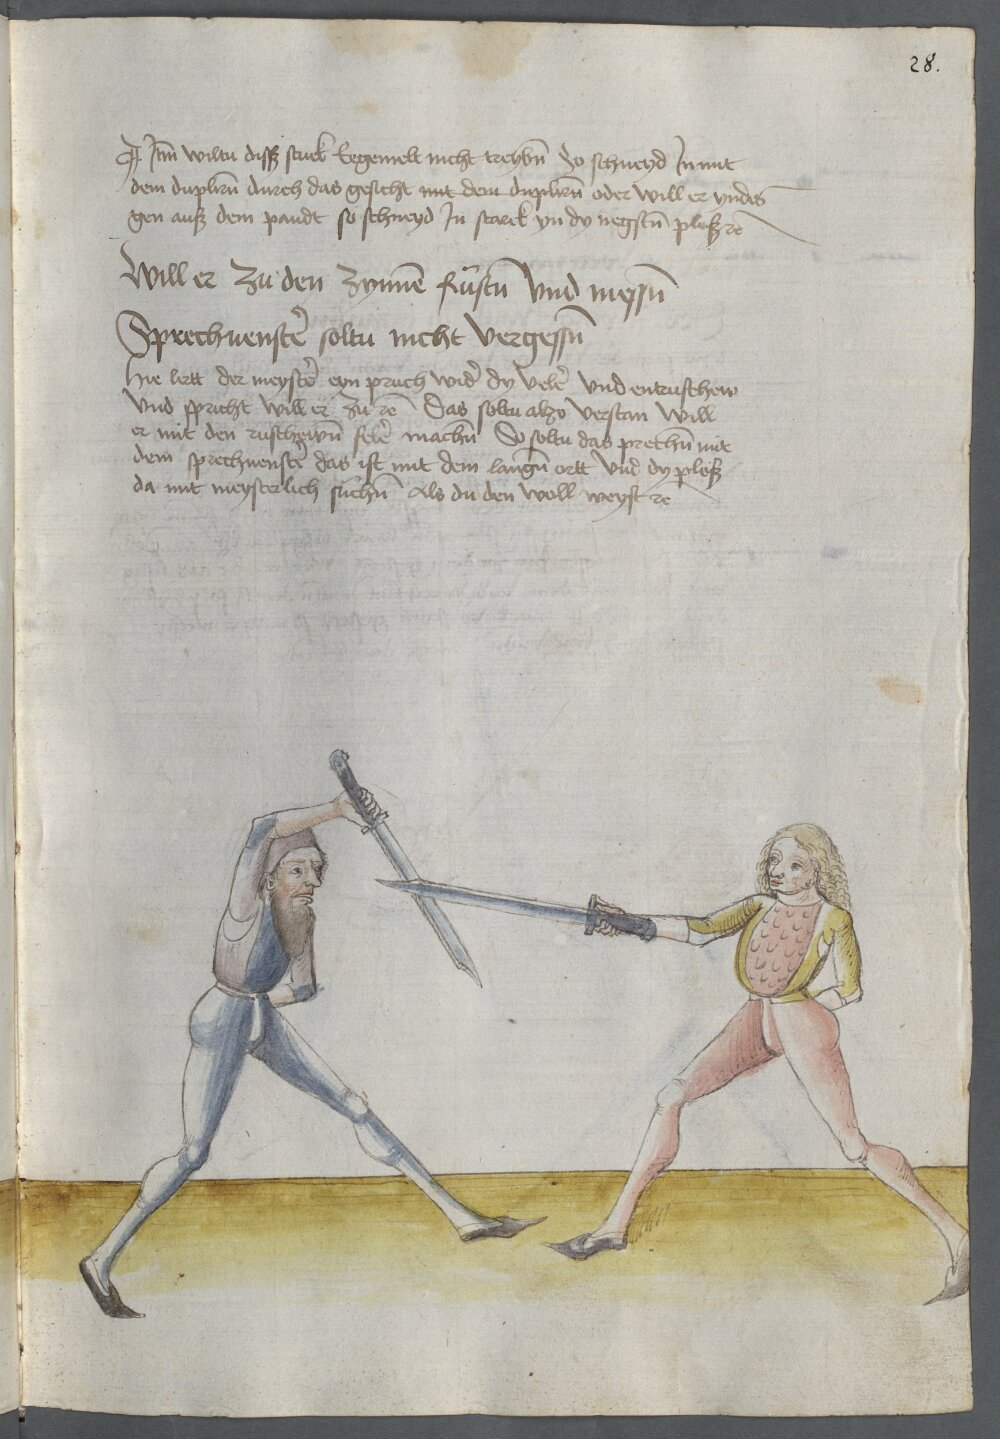 28.
Itm wiltu diß stuck Legenwelt nicht treybn So schneyd In mit
dem duplirn durch das gesicht mit dem duplirn oder will er yndes
gen auß dem pandt so schneyd In starck yn dy negstn plöß re
Will er zu den zynnē fristn Vnd messn
Sprechvenster soltu nicht vergessn
Hie lertt der meyster eyn pruch wider dy veler Vnd entruschen
Vnd spricht will er zu re Das soltu alzo verstan will
er mit den veler machn So soltu das prechn mit
dem sprechvenster das ist mit dem langn ortt Vnd dy plöß
da mit meysterlich suchn Als du den woll weyst re